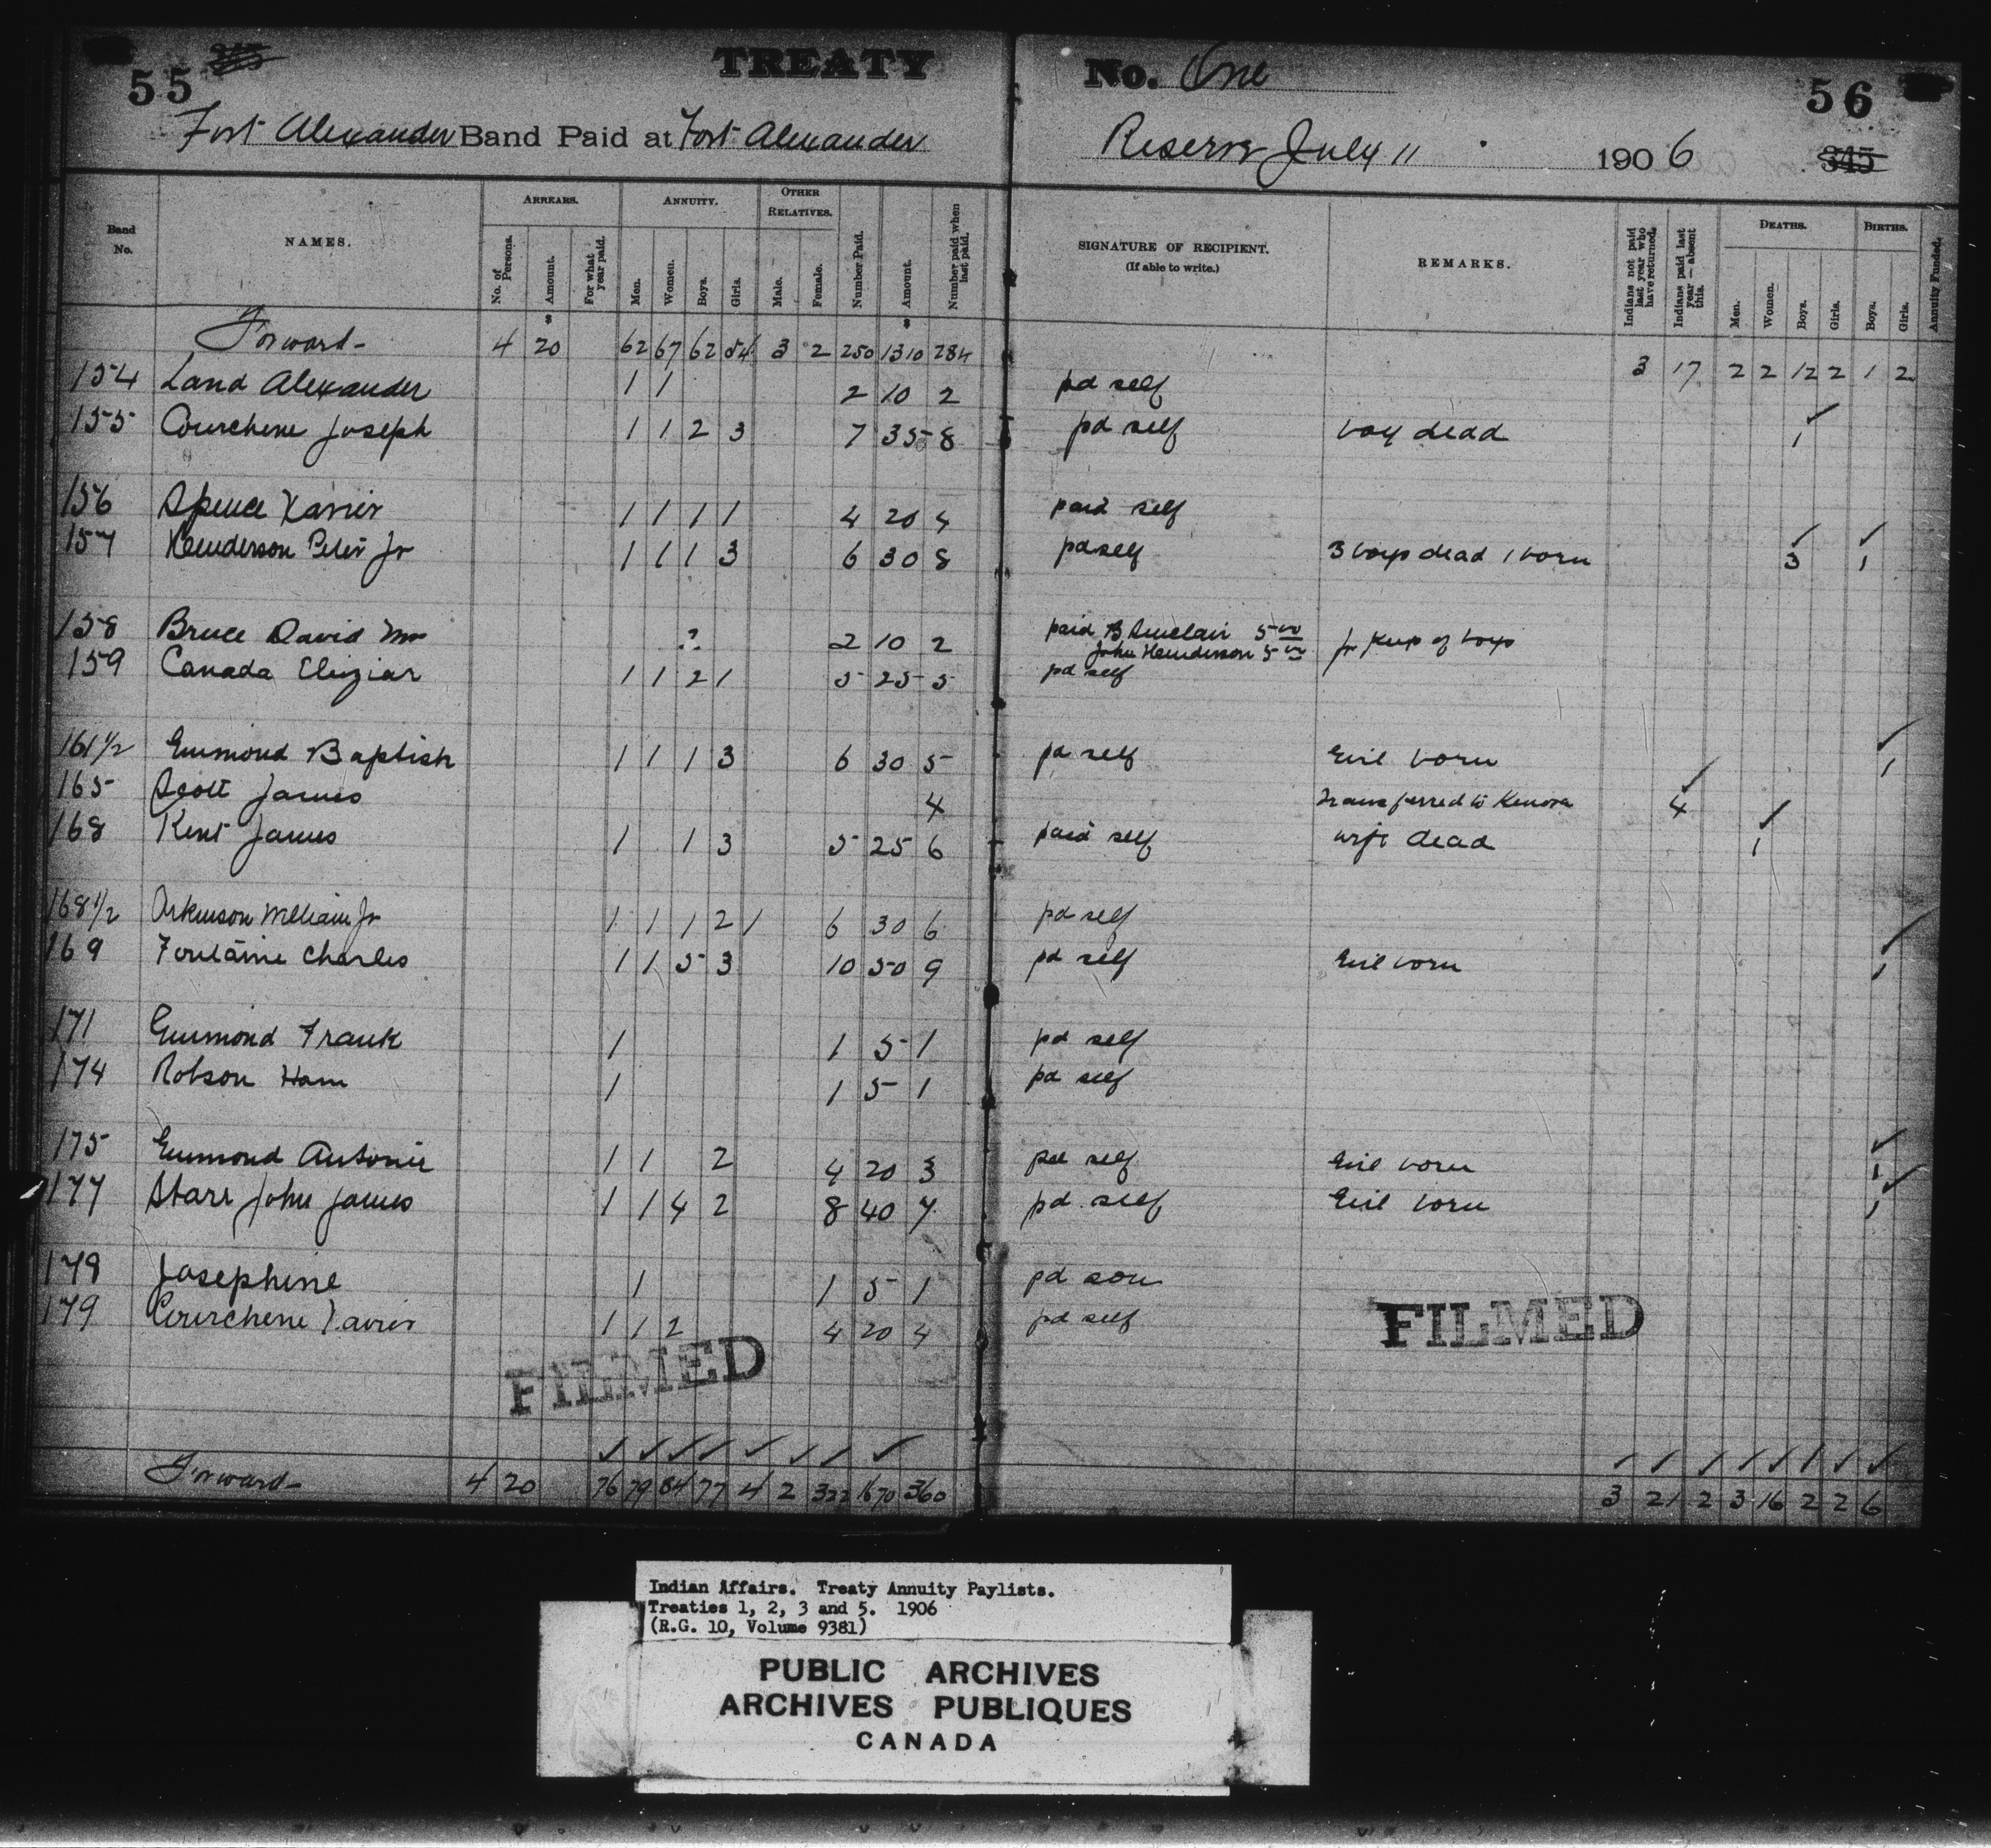 55 345 TREATY No. One 56
Fort Alexander Band Paid at Fort Alexander Reserve July 11 1906 345
Band No. NAMES. ARREARS. ANNUITY. OTHER RELATIVES. Number Paid. Amount. Number paid when last paid. SIGNATURE OF RECIPIENT. (If able to write.) REMARKS. Indians not paid last year who have returned. Indians paid last year—absent this. DEATHS. BIRTHS. Annuity Funded.
No. of Persons. Amount. For what year paid. Men. Women. Boys. Girls. Male. Female. Men. Women. Boys. Girls. Boys. Girls.
$ $
Forward 4 20 62 67 62 54 3 2 250 1310 284 3 17 2 2 12 2 1 2
154 Land Alexander 1 1 2 10 2 pd self
155 Courchene Joseph 1 1 2 3 7 35 8 pd self boy dead 1
156 Spence Xavier 1 1 1 1 4 20 4 paid self
157 Henderson Peter Jr 1 1 1 3 6 30 8 pd self 3 boys dead 1 born 3 1
158 Bruce David 2 2 10 2 paid B Sinclair 5 00 John Henderson 5 00 for keep of boys
159 Canada Eliziar 1 1 2 1 5 25 5 pd self
161 1/2 Emmond Baptish 1 1 1 3 6 30 5 pd self Girl born 1
165 Scott James 4 Transferred to Kenora 4
168 Kent James 1 1 3 5 25 6 paid self wife dead 1
168 1/2 Arkinson William Jr 1 1 1 2 1 6 30 6 pd self
169 Fontaine Charles 1 1 5 3 10 50 9 pd self Girl born 1
171 Emmond Frank 1 1 5 1 pd self
174 Robson Ham 1 1 5 1 pd self
175 Emmond Antonie 1 1 2 4 20 3 pd self Girl born 1
177 Starr John James 1 1 4 2 8 40 7 pd self Girl born 1
179 Josephine 1 1 5 1 pd son
179 Courchene Xavier 1 1 2 4 20 4 pd self
FILMED FILMED
Forward 4 20 76 79 84 77 4 2 322 1670 360 3 21 2 3 16 2 2 6
Indian Affairs. Treaty Annuity Paylists.
Treaties 1, 2, 3 and 5. 1906
(R.G. 10, Volume 9381)
PUBLIC ARCHIVES
ARCHIVES PUBLIQUES
CANADA